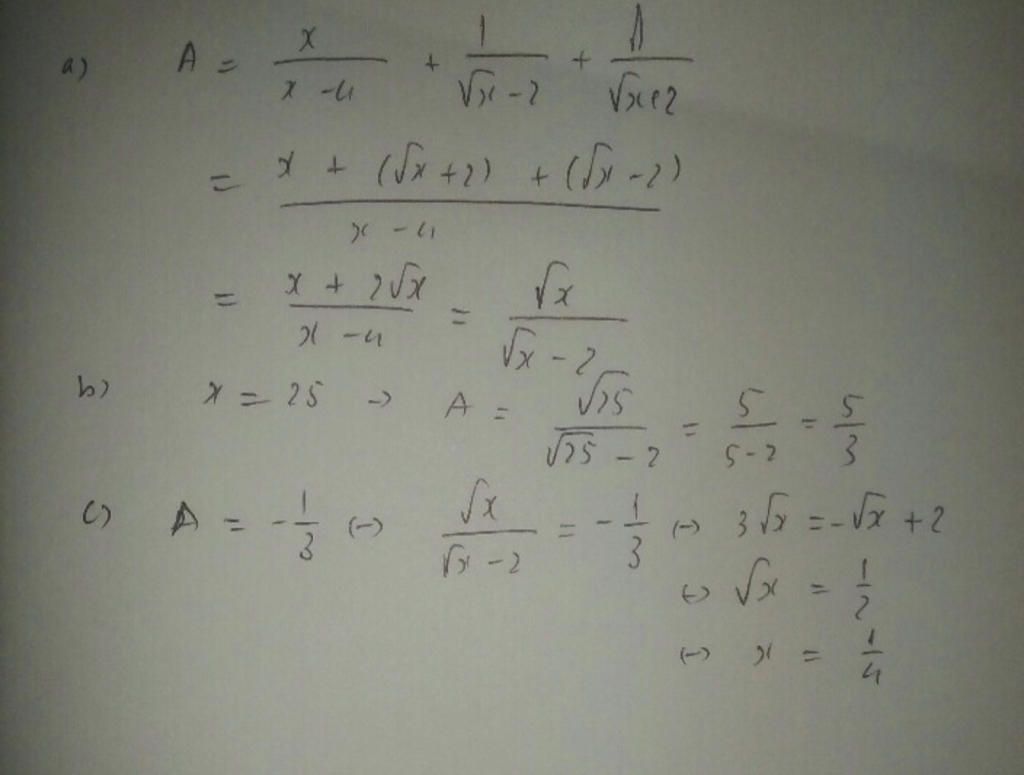 a) A = x/(x - 4) + 1/(√x - 2) + 1/(√x + 2)
= (x + (√x + 2) + (√x - 2))/(x - 4)
= (x + 2√x)/(x - 4) = √x/(√x - 2)
b) x = 25 → A = √25/(√25 - 2) = 5/(5 - 2) = 5/3
c) A = -1/3 ↔ √x/(√x - 2) = -1/3 ↔ 3√x = -√x + 2
↔ √x = 1/2
↔ x = 1/4